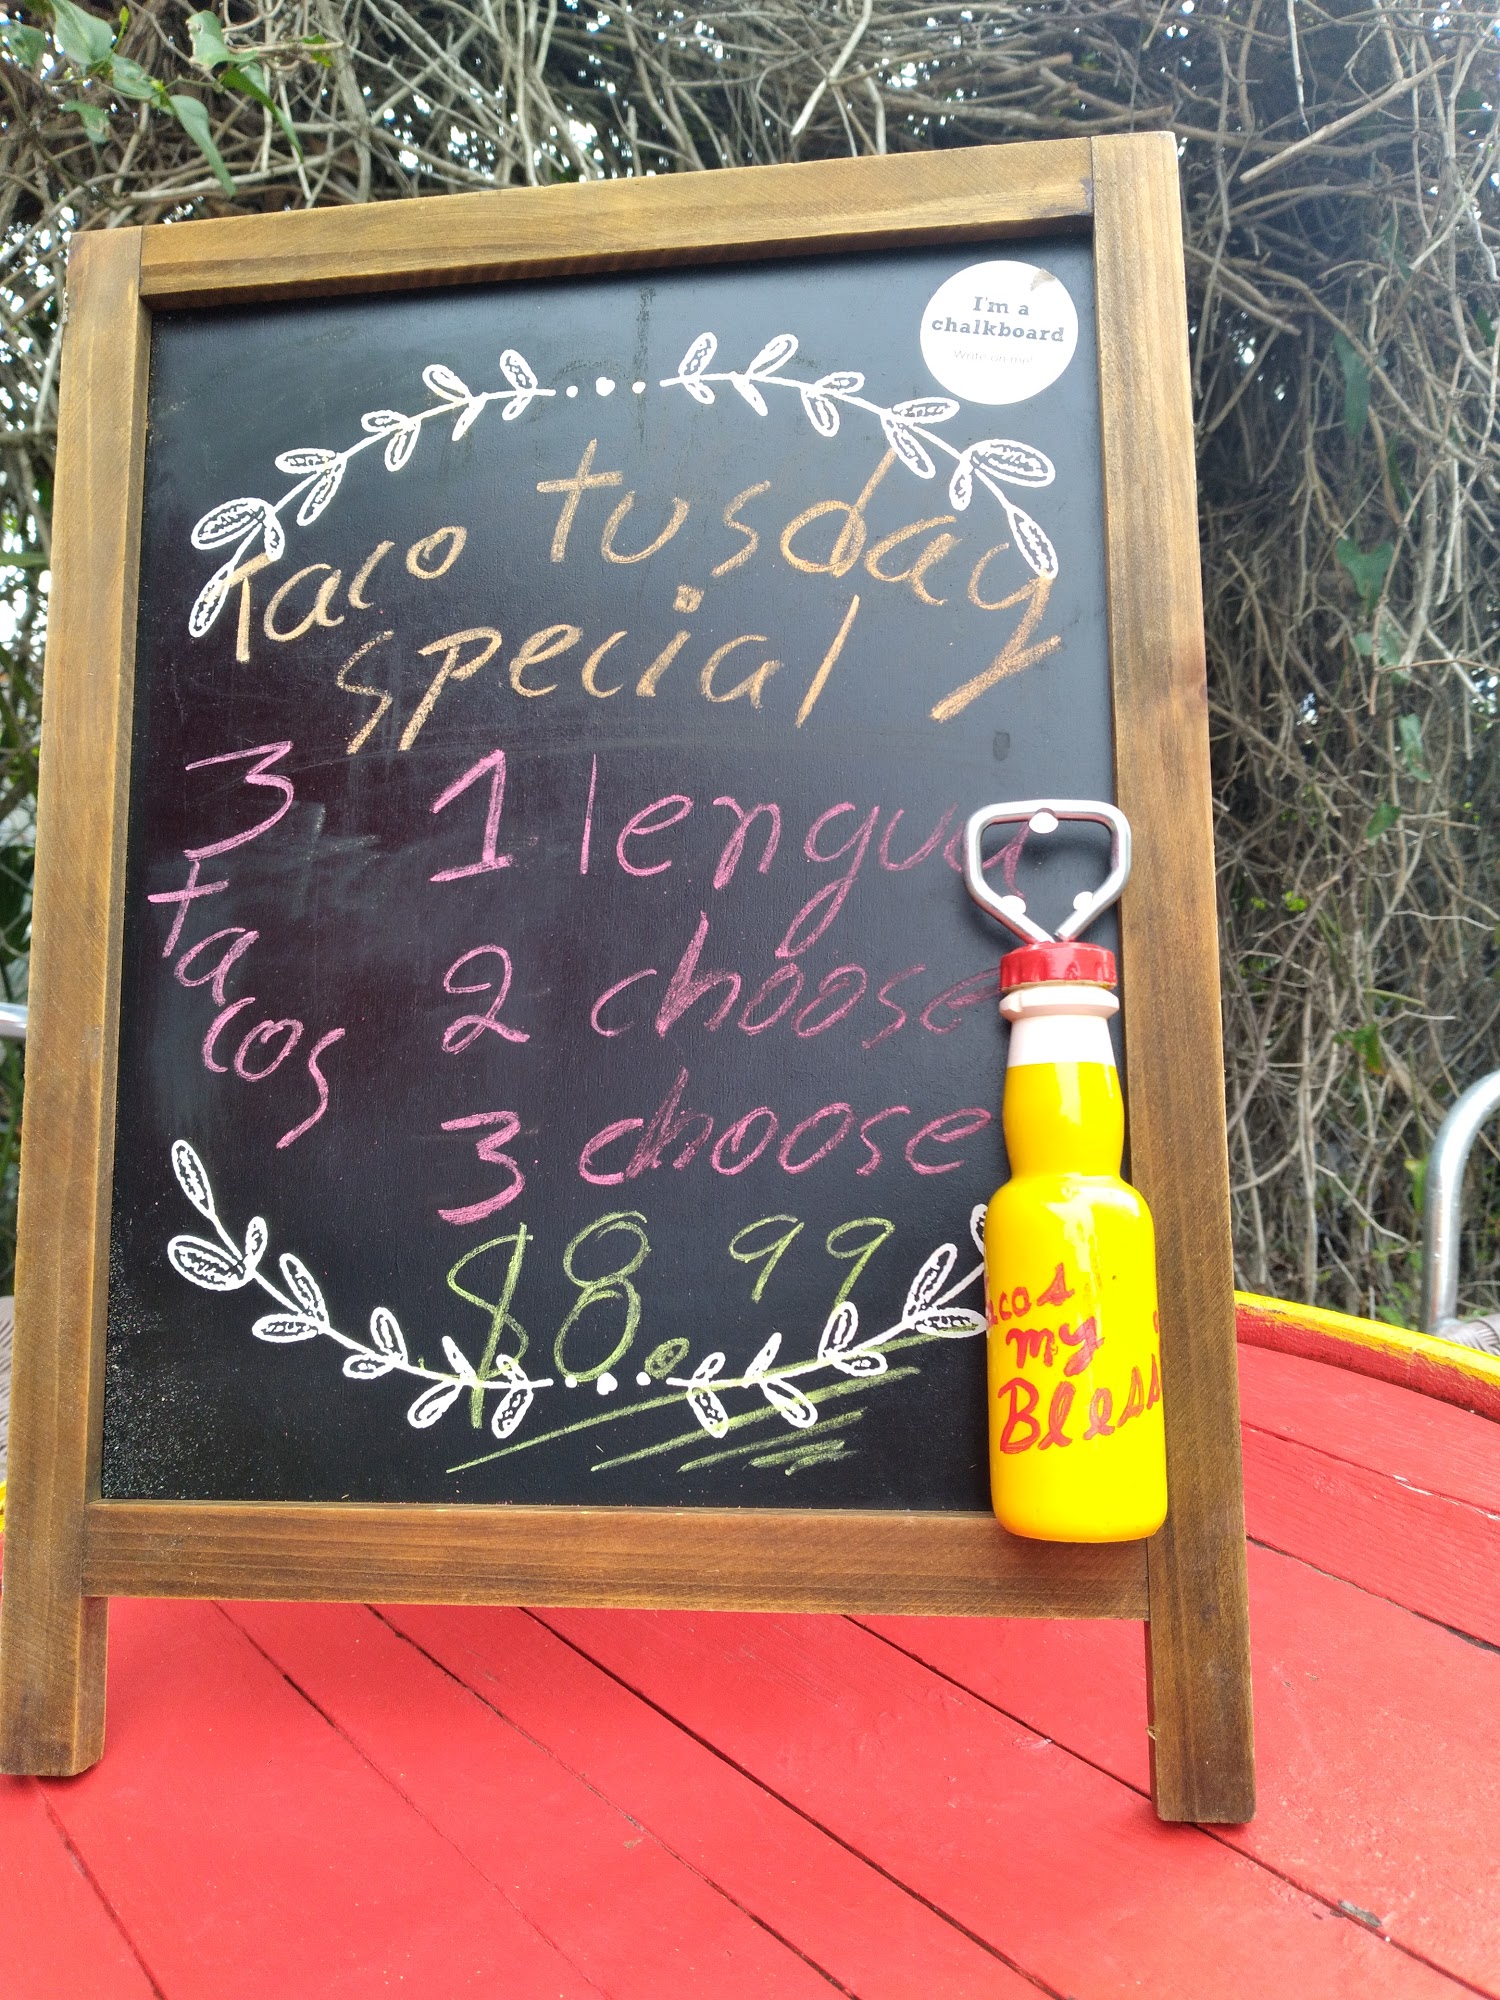 I'm a
chalkboard
Write on me!
Taco tusday
special
3 tacos
1 lengua
2 choose
3 choose
$8.99
acos
my
Bless